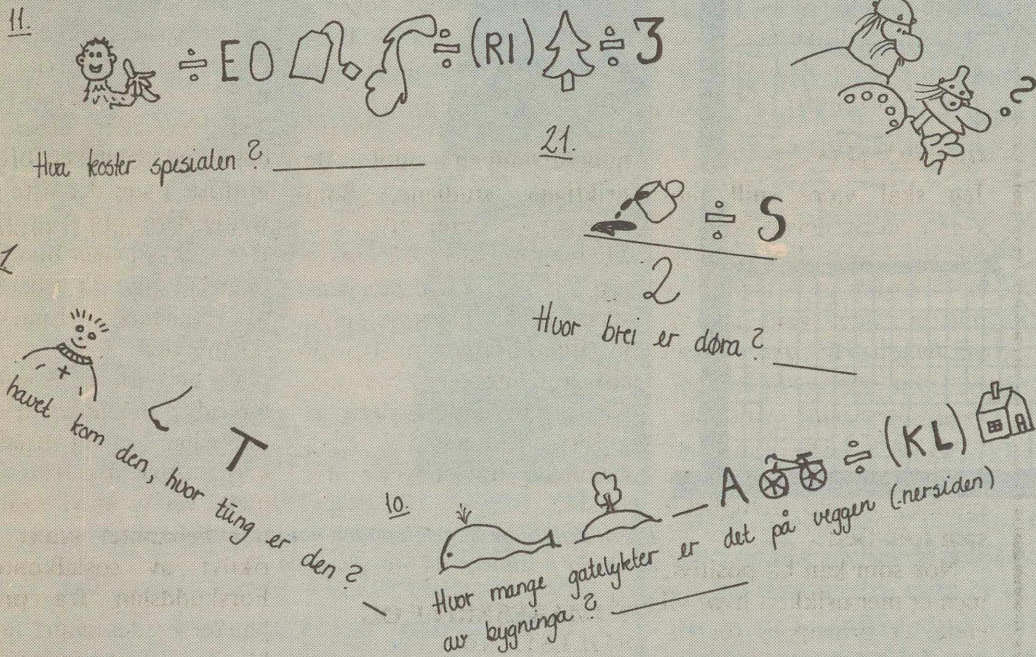 11.
÷ E O ÷ (RI) ÷ 3
?
Hva koster spesialen?
21.
÷ S
2
Hvor brei er døra?
1
T
havet kom den, hvor tung er den?
10.
— A ÷ (KL)
Hvor mange gatelykter er det på veggen (.nersiden)
av bygninga?